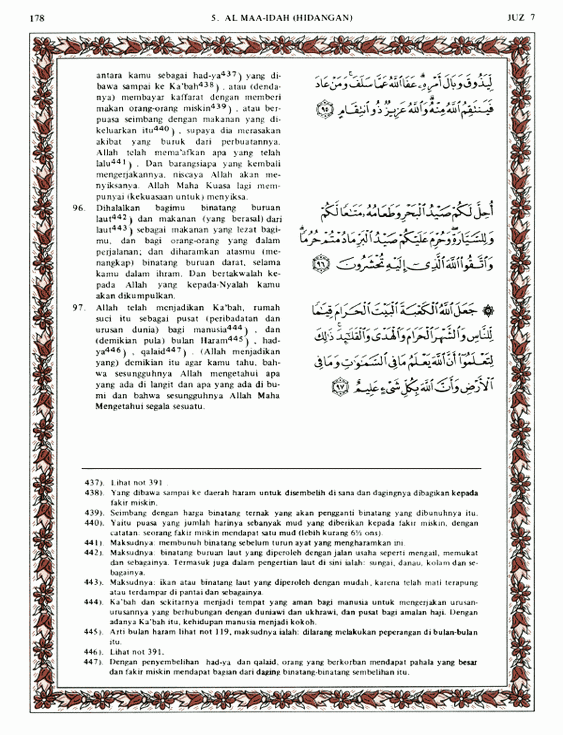 178
5. AL MAA-IDAH (HIDANGAN)
JUZ 7
antara kamu sebagai had-ya437) yang di-
bawa sampai ke Ka'bah438) . atau (denda-
nya) membayar kaffarat dengan memberi
makan orang-orang miskin439) . atau ber-
puasa seimbang dengan makanan yang di-
keluarkan itu440) , supaya dia merasakan
akibat yang buruk dari perbuatannya.
Allah telah mema'afkan apa yang telah
lalu441) . Dan barangsiapa yang kembali
mengerjakannya, niscaya Allah akan me-
nyiksanya. Allah Maha Kuasa lagi mem-
punyai (kekuasaan untuk) menyiksa.
96. Dihalalkan bagimu binatang buruan
laut442) dan makanan (yang berasal) dari
laut443) sebagai makanan yang lezat bagi-
mu, dan bagi orang-orang yang dalam
perjalanan; dan diharamkan atasmu (me-
nangkap) binatang buruan darat, selama
kamu dalam ihram. Dan bertakwalah ke-
pada Allah yang kepada-Nyalah kamu
akan dikumpulkan.
97. Allah telah menjadikan Ka'bah, rumah
suci itu sebagai pusat (peribadatan dan
urusan dunia) bagi manusia444) , dan
(demikian pula) bulan Haram445) , had-
ya446) , qalaid447) . (Allah menjadikan
yang) demikian itu agar kamu tahu, bah-
wa sesungguhnya Allah mengetahui apa
yang ada di langit dan apa yang ada di bu-
mi dan bahwa sesungguhnya Allah Maha
Mengetahui segala sesuatu.
لِيَذُوقَ وَبَالَ أَمْرِهِ عَفَا اللَّهُ عَمَّا سَلَفَ وَمَنْ عَادَ
فَيَنْتَقِمُ اللَّهُ مِنْهُ وَاللَّهُ عَزِيزٌ ذُو انْتِقَامٍ ۝٩٥
أُحِلَّ لَكُمْ صَيْدُ الْبَحْرِ وَطَعَامُهُ مَتَاعًا لَكُمْ
وَلِلسَّيَّارَةِ وَحُرِّمَ عَلَيْكُمْ صَيْدُ الْبَرِّ مَا دُمْتُمْ حُرُمًا
وَاتَّقُوا اللَّهَ الَّذِي إِلَيْهِ تُحْشَرُونَ ۝٩٦
جَعَلَ اللَّهُ الْكَعْبَةَ الْبَيْتَ الْحَرَامَ قِيَامًا
لِلنَّاسِ وَالشَّهْرَ الْحَرَامَ وَالْهَدْيَ وَالْقَلَائِدَ ذَلِكَ
لِتَعْلَمُوا أَنَّ اللَّهَ يَعْلَمُ مَا فِي السَّمَوَاتِ وَمَا فِي
الْأَرْضِ وَأَنَّ اللَّهَ بِكُلِّ شَيْءٍ عَلِيمٌ ۝٩٧
437). Lihat not 391 .
438). Yang dibawa sampai ke daerah haram untuk disembelih di sana dan dagingnya dibagikan kepada
fakir miskin.
439). Seimbang dengan harga binatang ternak yang akan pengganti binatang yang dibunuhnya itu.
440). Yaitu puasa yang jumlah harinya sebanyak mud yang diberikan kepada fakir miskin, dengan
catatan. seorang fakir miskin mendapat satu mud (lebih kurang 6½ ons).
441). Maksudnya: membunuh binatang sebelum turun ayat yang mengharamkan ini.
442). Maksudnya: binatang buruan laut yang diperoleh dengan jalan usaha seperti mengail, memukat
dan sebagainya. Termasuk juga dalam pengertian laut di sini ialah: sungai, danau, kolam dan se-
bagainya.
443). Maksudnya: ikan atau binatang laut yang diperoleh dengan mudah, karena telah mati terapung
atau terdampar di pantai dan sebagainya.
444). Ka'bah dan sekitarnya menjadi tempat yang aman bagi manusia untuk mengerjakan urusan-
urusannya yang berhubungan dengan duniawi dan ukhrawi, dan pusat bagi amalan haji. Dengan
adanya Ka'bah itu, kehidupan manusia menjadi kokoh.
445). Arti bulan haram lihat not 119, maksudnya ialah: dilarang melakukan peperangan di bulan-bulan
itu.
446). Lihat not 391.
447). Dengan penyembelihan had-ya dan qalaid, orang yang berkorban mendapat pahala yang besar
dan fakir miskin mendapat bagian dari daging binatang-binatang sembelihan itu.